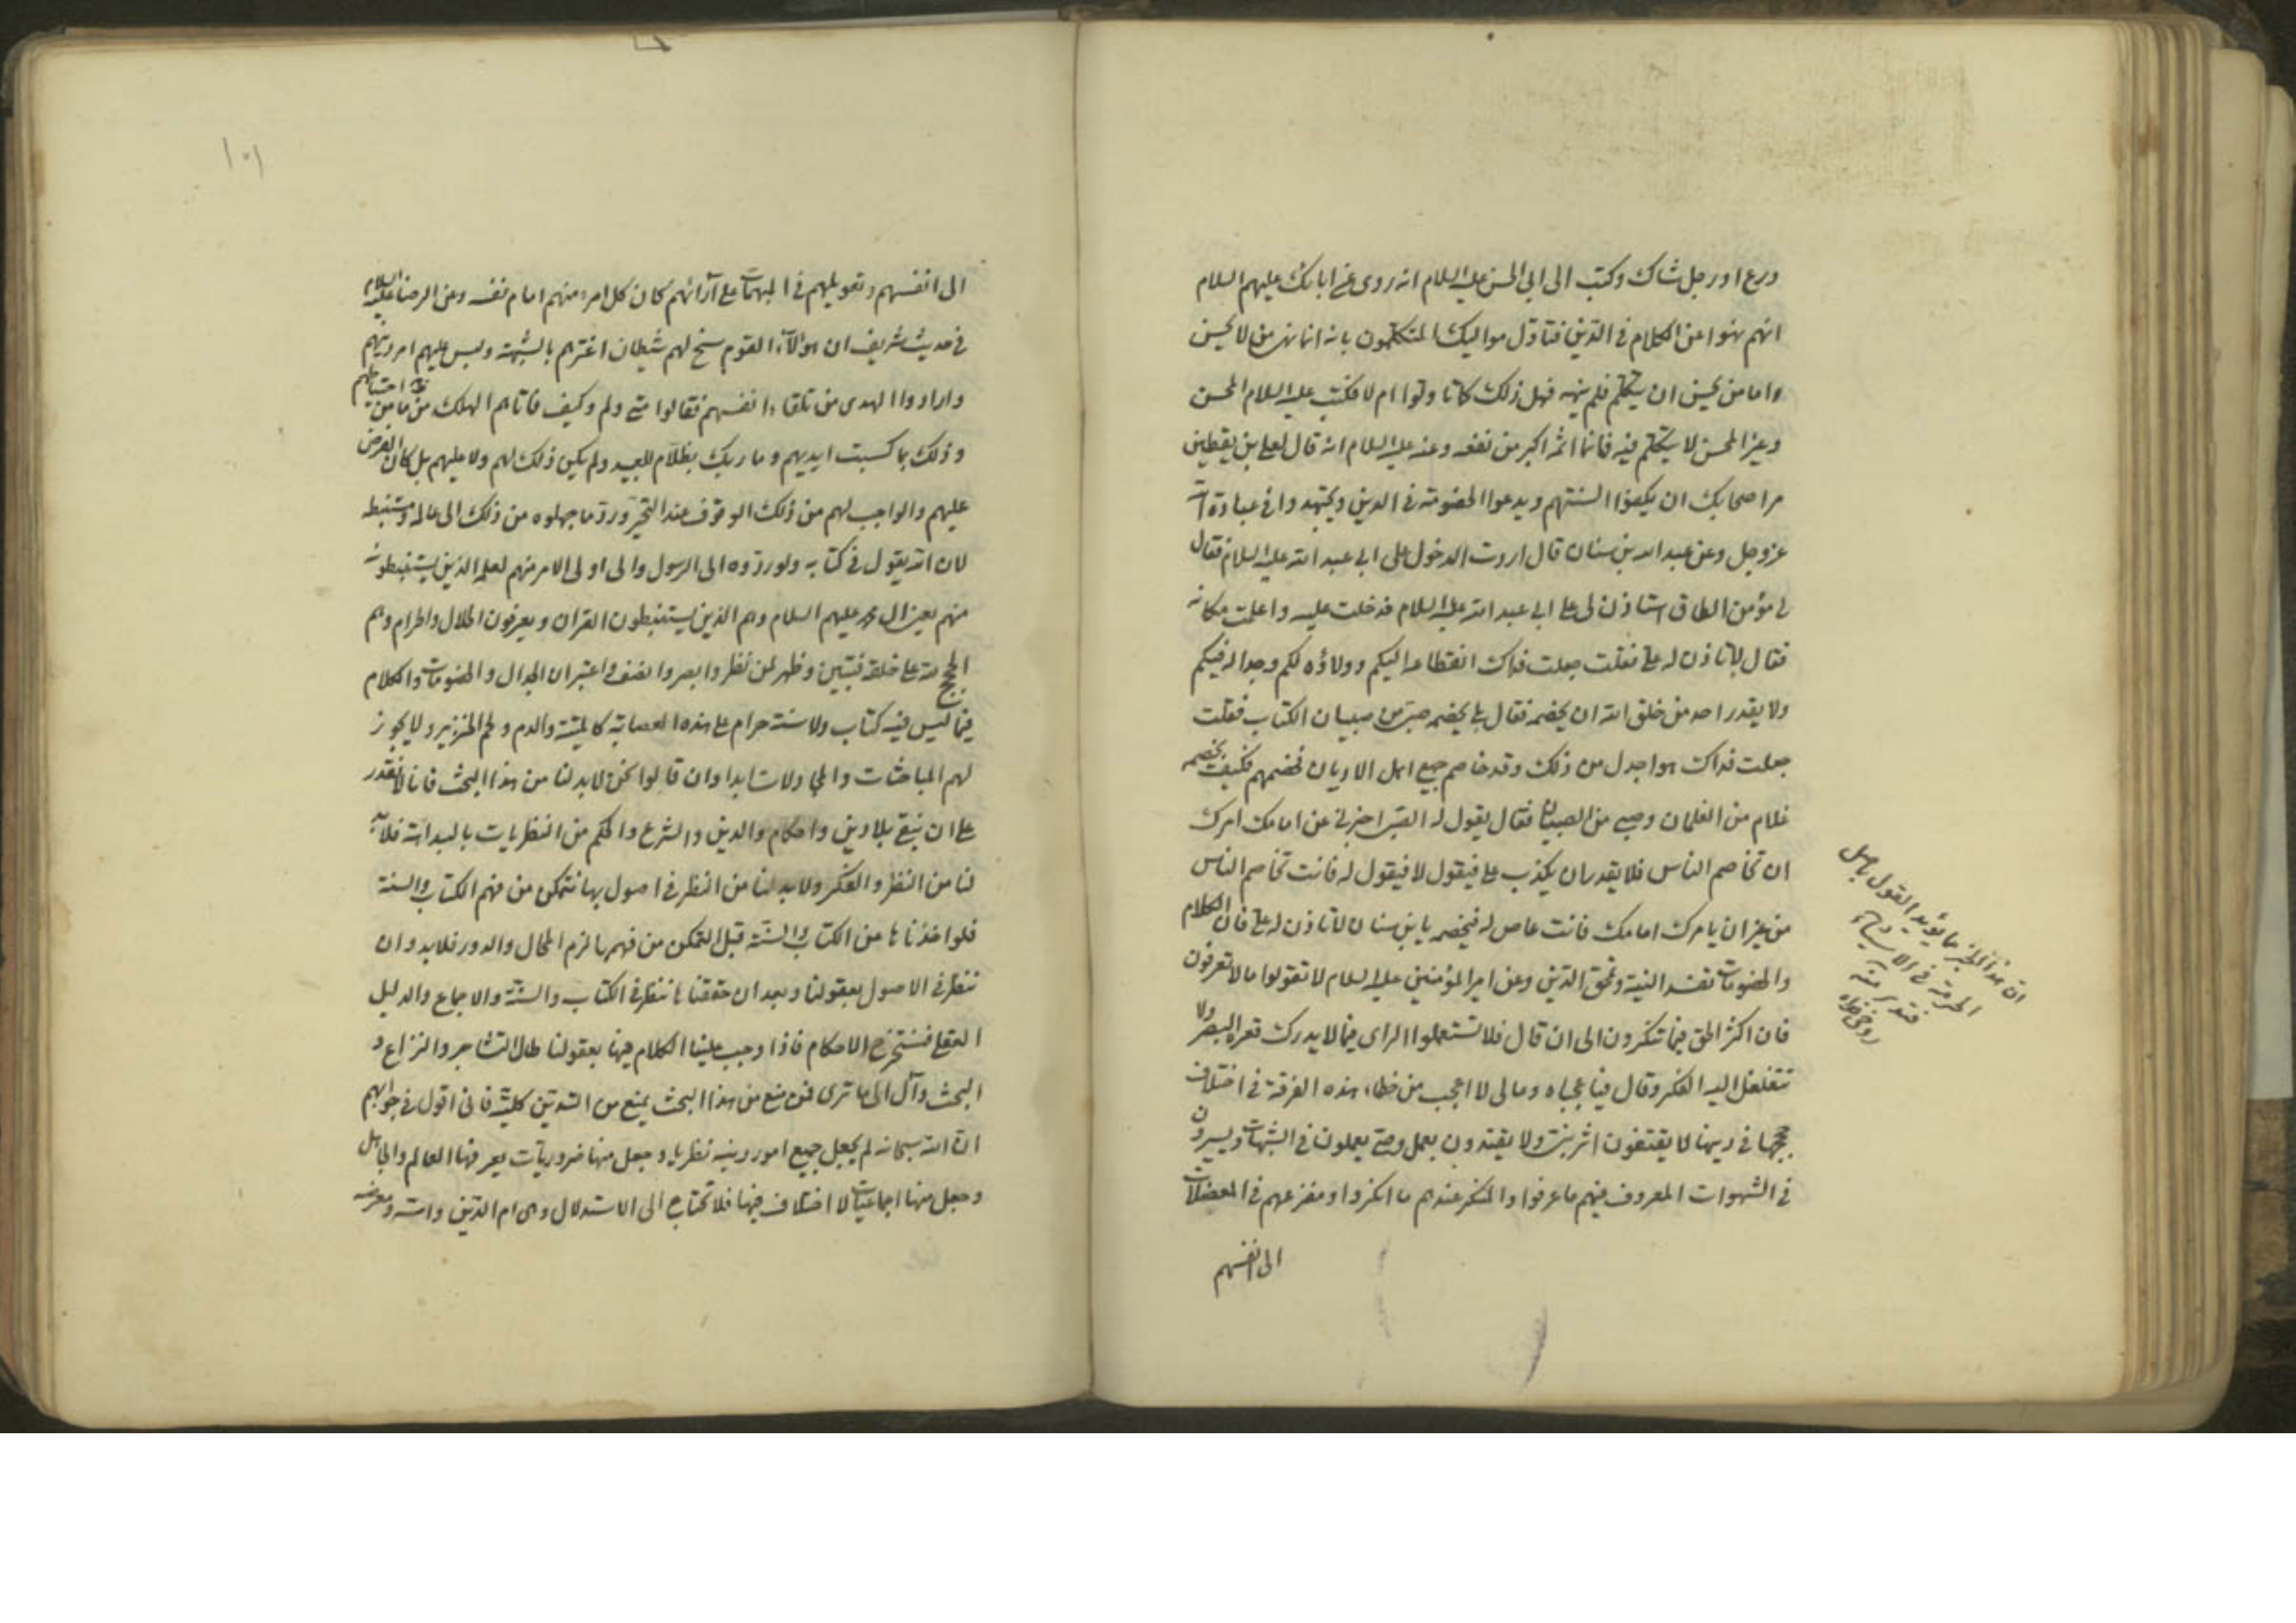 ورع او رجل شاك وكتب الى ابي الحسن عليه السلام انه روى عن ابائك عليهم السلام
انهم نهوا عن الكلام في الدين فتاول مواليك المتكلمون بانه انما نهى من لا يحسن
واما من يحسن ان يتكلم فلم ينهه فهل ذلك كما تاولوا ام لا فكتب عليه السلام المحسن
وغير المحسن لا يتكلم فيه فانما اثمه اكبر من نفعه وعنه عليه السلام انه قال لعلي بن يقطين
مر اصحابك ان يكفوا السنتهم ويدعوا الخصومة في الدين ويجتهدوا في عبادة الله
عز وجل وعن عبد الله بن سنان قال اردت الدخول على ابي عبد الله عليه السلام فقال
لي مؤمن الطاق استاذن لي على ابي عبد الله عليه السلام فدخلت عليه واعلمت مكانه
فقال لا تاذن له علي فقلت جعلت فداك انقطاعه اليكم وولاؤه لكم وجداله فيكم
ولا يقدر احد من خلق الله ان يخصمه فقال بلى يخصمه صبي من صبيان الكتاب فقلت
جعلت فداك هو اجدل من ذلك وقد خاصم جميع اهل الاديان فخصمهم فكيف يخصمه
غلام من الغلمان وصبي من الصبيان فقال يقول له الصبي اخبرني عن امامك امرك
ان تخاصم الناس فلا يقدر ان يكذب علي فيقول لا فيقول له فانت تخاصم الناس
من غير ان يامرك امامك فانت عاص له فيخصمه يا بن سنان لا تاذن له علي فان الكلام
والخصومات تفسد النية وتمحق الدين وعن امير المؤمنين عليه السلام لا تقولوا ما لا تعرفون
فان اكثر الحق فيما تنكرون الى ان قال فلا تستعملوا الراى فيما لا يدرك قعره البصر ولا
تتغلغل اليه الفكر وقال فيا عجباه وما لى لا اعجب من خطاء هذه الفرقة في اختلاف
حججها في دينها لا يقتفون اثر نبي ولا يقتدون بعمل وصي يعملون في الشبهات ويسيرون
في الشهوات المعروف فيهم ما عرفوا والمنكر عندهم ما انكروا ومفزعهم في المعضلات
الى انفسهم
ان هذا الخبر مما يؤيد القول باصل
الحرمة في الاشياء
فتدبر منه
روحي فداه
١٠١
الى انفسهم وتعويلهم في المبهمات على آرائهم كان كل امرء منهم امام نفسه وعن الرضا عليه السلام
في حديث شريف ان هؤلآء القوم سنح لهم شيطان اغترهم بالشبهة ولبس عليهم امر دينهم
وارادوا الهدى من تلقاء انفسهم فقالوا متى ولم وكيف فاتاهم الهلك من مامن احتياطهم
وذلك بما كسبت ايديهم وما ربك بظلام للعبيد ولم يكن ذلك لهم ولا عليهم بل كان الفرض
عليهم والواجب لهم من ذلك الوقوف عند التحير ورد ما جهلوه من ذلك الى عالمه ومستنبطه
لان الله يقول في كتابه ولو ردوه الى الرسول والى اولى الامر منهم لعلمه الذين يستنبطونه
منهم يعني ال محمد عليهم السلام وهم الذين يستنبطون القران ويعرفون الحلال والحرام وهم
الحجج لله على خلقه فتبين وظهر لمن نظر وابصر وانصف واعتبر ان الجدال والخصومات والكلام
فيما ليس فيه كتاب ولا سنة حرام على هذه العصابة كالميتة والدم ولحم الخنزير ولا يجوز
لهم المباحثات والمجادلات ابدا وان قالوا نحن لا بد لنا من هذا البحث فانا لا نقدر
على ان نبقى بلا دين واحكام والدين والشرع والحكم من النظريات بالبداهة فلا بد
لنا من النظر والفكر ولا بد لنا من النظر في اصول بها نتمكن من فهم الكتاب والسنة
فلو اخذناها من الكتاب والسنة قبل التمكن من فهمها لزم المحال والدور فلا بد وان
ننظر في الاصول بعقولنا وبعد ان حققناها ننظر في الكتاب والسنة والاجماع والدليل
العقلي فنستخرج الاحكام فاذا وجب علينا الكلام فيها بعقولنا طال التشاجر والنزاع و
البحث وآل الى ما ترى فمن منع من هذا البحث يمنع من التدين كلية فانى اقول في جوابهم
ان الله سبحانه لم يجعل جميع امور دينه نظريا وجعل منها ضروريات يعرفها العالم والجاهل
وجعل منها اجماعيات لا اختلاف فيها فلا تحتاج الى الاستدلال وهى ام الدين واسه ومعرفته